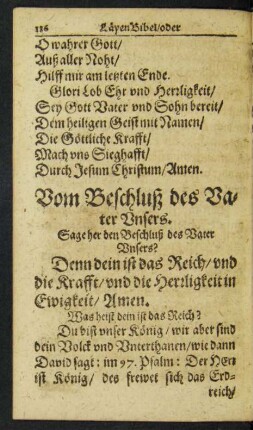 116 LäyenBibel/oder
O wahrer Gott/
Auß aller Noht/
Hilff mir am letzten Ende.
Glori Lob Ehr vnd Herrligkeit/
Sey Gott Vater vnd Sohn bereit/
Dem heiligen Geist mit Namen/
Die Göttliche Krafft/
Mach vns Sieghafft/
Durch Jesum Christum/Amen.
Vom Beschluß des Va-
ter Vnsers.
Sage her den Beschluß des Vater
Vnsers?
Denn dein ist das Reich/vnd
die Krafft/vnd die Herrligkeit in
Ewigkeit/ Amen.
Was heist dein ist das Reich?
Du bist vnser König/ wir aber sind
dein Volck vnd Vnterthanen/wie dann
David sagt: im 97. Psalm: Der Herr
ist König/ des frewet sich das Erd-
reich/